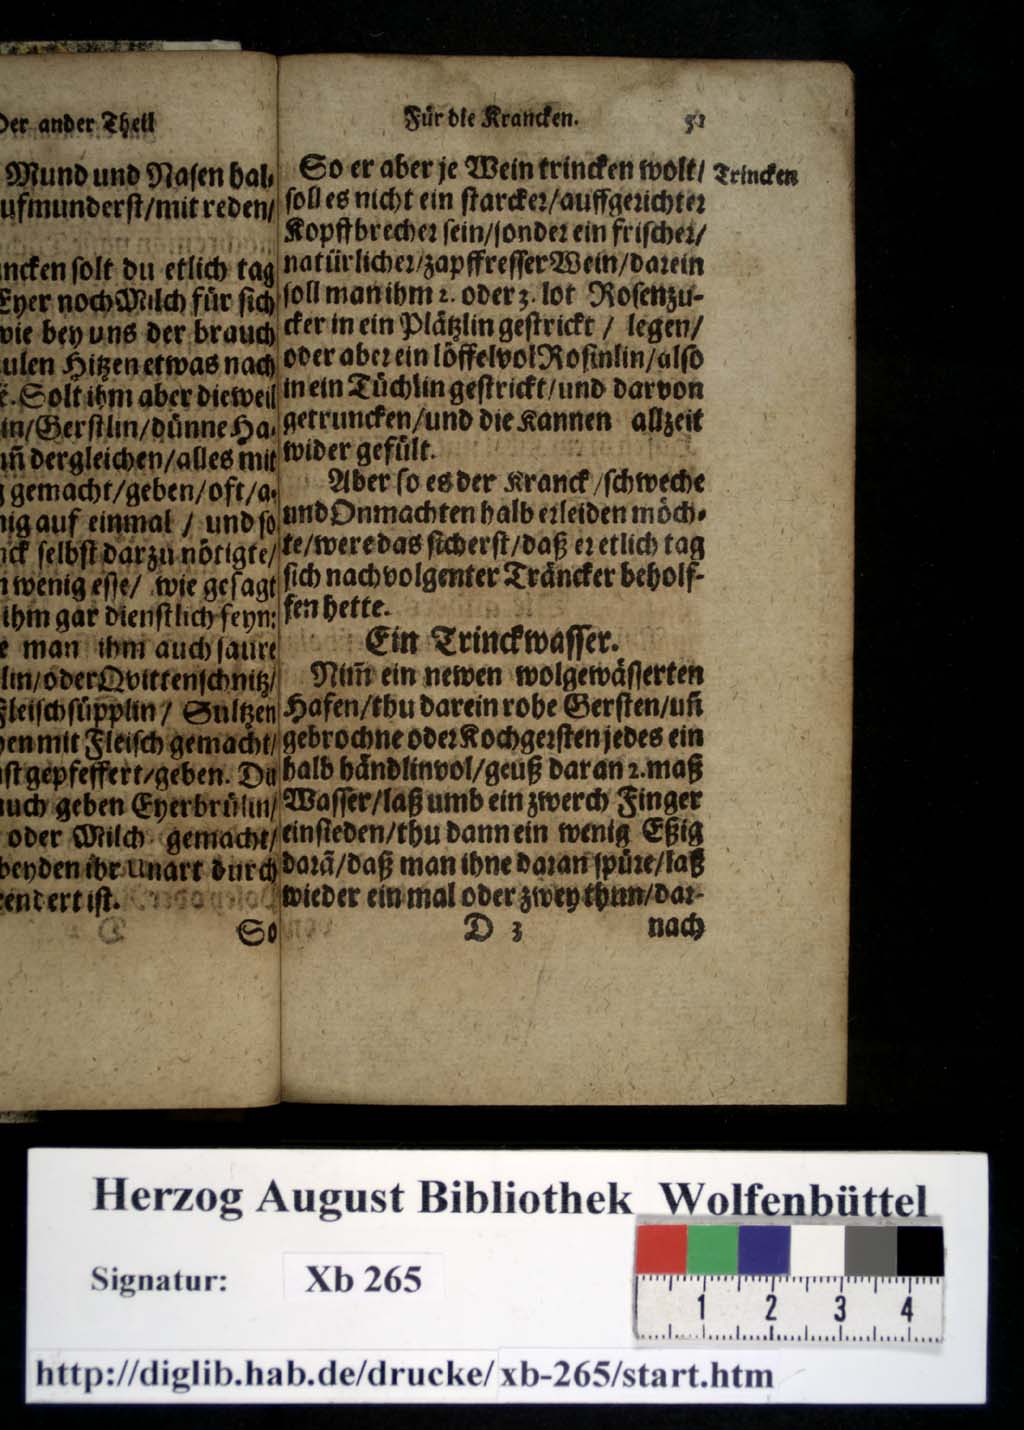 Der ander Theil
Mund und Nasen hal-
ufmunderst/mit reden/
ncken solt du etlich tag
Eyer noch Milch für sich
wie bey uns der brauch
ulen Hitzen etwas nach
Solt ihm aber dieweil
in/Gerstlin/dünne Ha-
dergleichen/alles mit
gemacht/geben/oft/a-
nig auf einmal / und so
nck selbst darzu nötigte/
n wenig esse/ wie gesagt
ihm gar dienstlich seyn:
e man ihm auch saure
lin/oder Qvittenschnitz/
Fleischsüpplin/ Sultzen
en mit Fleisch gemacht/
st gepfeffert/geben. Du
auch geben Eyerbrülin/
oder Milch gemacht/
beyden ihr Unart durch
endert ist.
So
Für die Krancken. 51
So er aber je Wein trincken wolt/ Trincken
soll es nicht ein starcker/auffgerichter
Kopffbrecher sein/sonder ein frischer/
natürlicher/zapffresser Wein/darein
soll man ihm 2. oder 3. lot Rosenzu-
cker in ein Plätzlin gestrickt / legen/
oder aber ein löffelvol Rosinlin/also
in ein Tüchlin gestrickt/und darvon
getruncken/und die Kannen allzeit
wider gefült.
Aber so es der Kranck/schweche
und Onmachten halb erleiden möch-
te/were das sicherst/daß er etlich tag
sich nachvolgenter Träncker beholf-
fen hette.
Ein Trinckwasser.
Nim̃ ein newen wolgewässerten
Hafen/thu darein rohe Gersten/uñ
gebrochne oder Kochgersten jedes ein
halb händlinvol/geuß daran 2. maß
Wasser/laß umb ein zwerch Finger
einsieden/thu dann ein wenig Eßig
darã/daß man ihne daran spüre/laß
wieder ein mal oder zwey thun/dar-
D 3 nach
Herzog August Bibliothek Wolfenbüttel
Signatur: Xb 265
1 2 3 4
http://diglib.hab.de/drucke/xb-265/start.htm